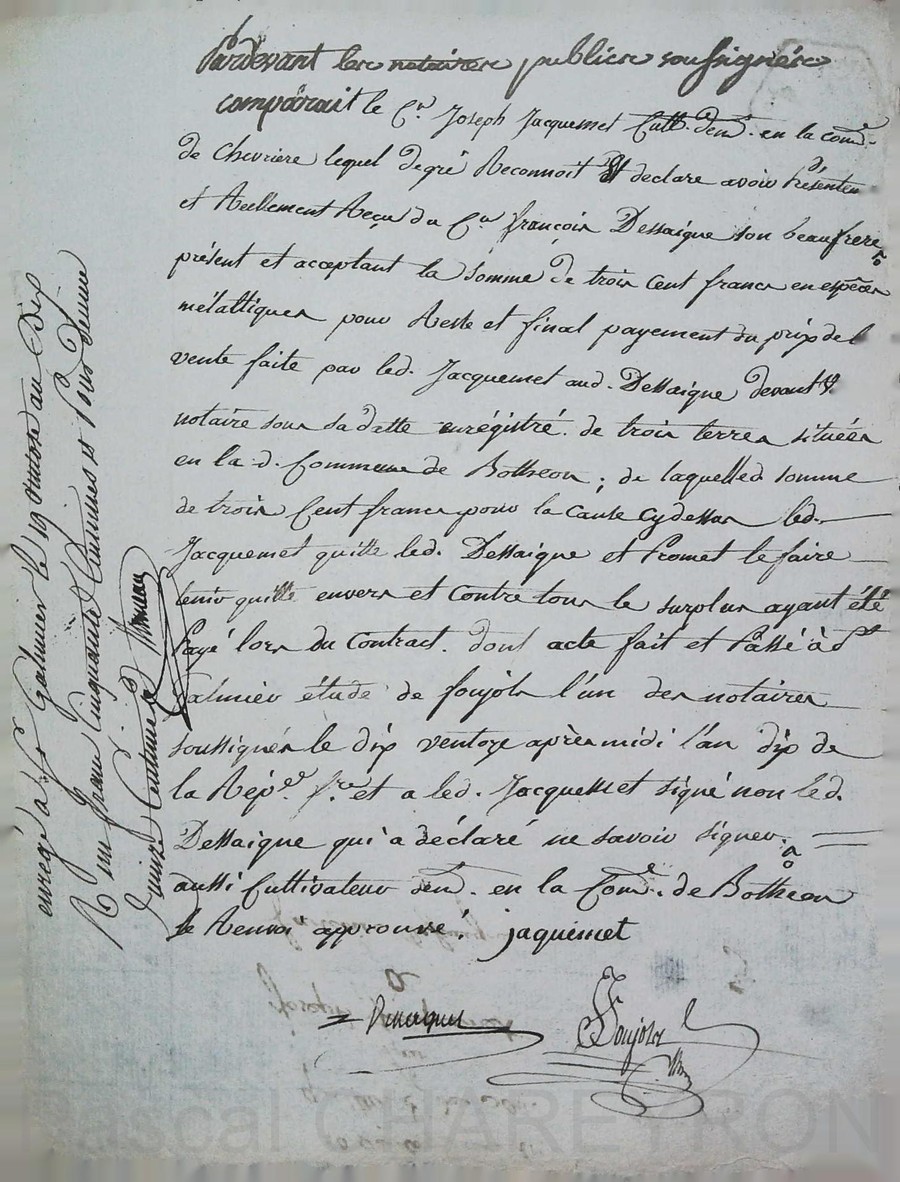 Pardevant les notaires publics soussignés
comparait le Cn. Joseph Jacquemet Cult. dem. en la com.
de Chevriere lequel de gré Reconnoit et declare avoir Présentem.
et Reellement Reçu du Cn. françois Dessaigne son beaufrere
présent et acceptant la somme de trois cent francs en espèces
métalliques pour Reste et final payement du prix de l
vente faite par led. Jacquemet aud. Dessaigne devant
notaire sous sa datte enrégistré. de trois terres situées
en la d. Commune de Botheon ; de laquelled somme
de trois Cent francs pour la cause cydessus led.
Jacquemet quitte led. Dessaigne et Promet le faire
tenir quitte envers et Contre tous le surplus ayant été
Payé lors du Contract. dont acte fait et Passé à St
Galmier étude de foujols l'un des notaires
soussignés le dix ventoze après midi l'an dix de
la Rép. fr. et a led. Jacquemet signé non led.
Dessaigne qui a déclaré ne savoir signer.
aussi Cultivateur dem. en la Com. de Botheon
le Renvoi approuvé. jaquemet
Foujols
enregé à St Galmier le 19 ventose an Dix
R un franc Cinquante Centimes et pour
quinze Centimes
Pascal CHAREYRON